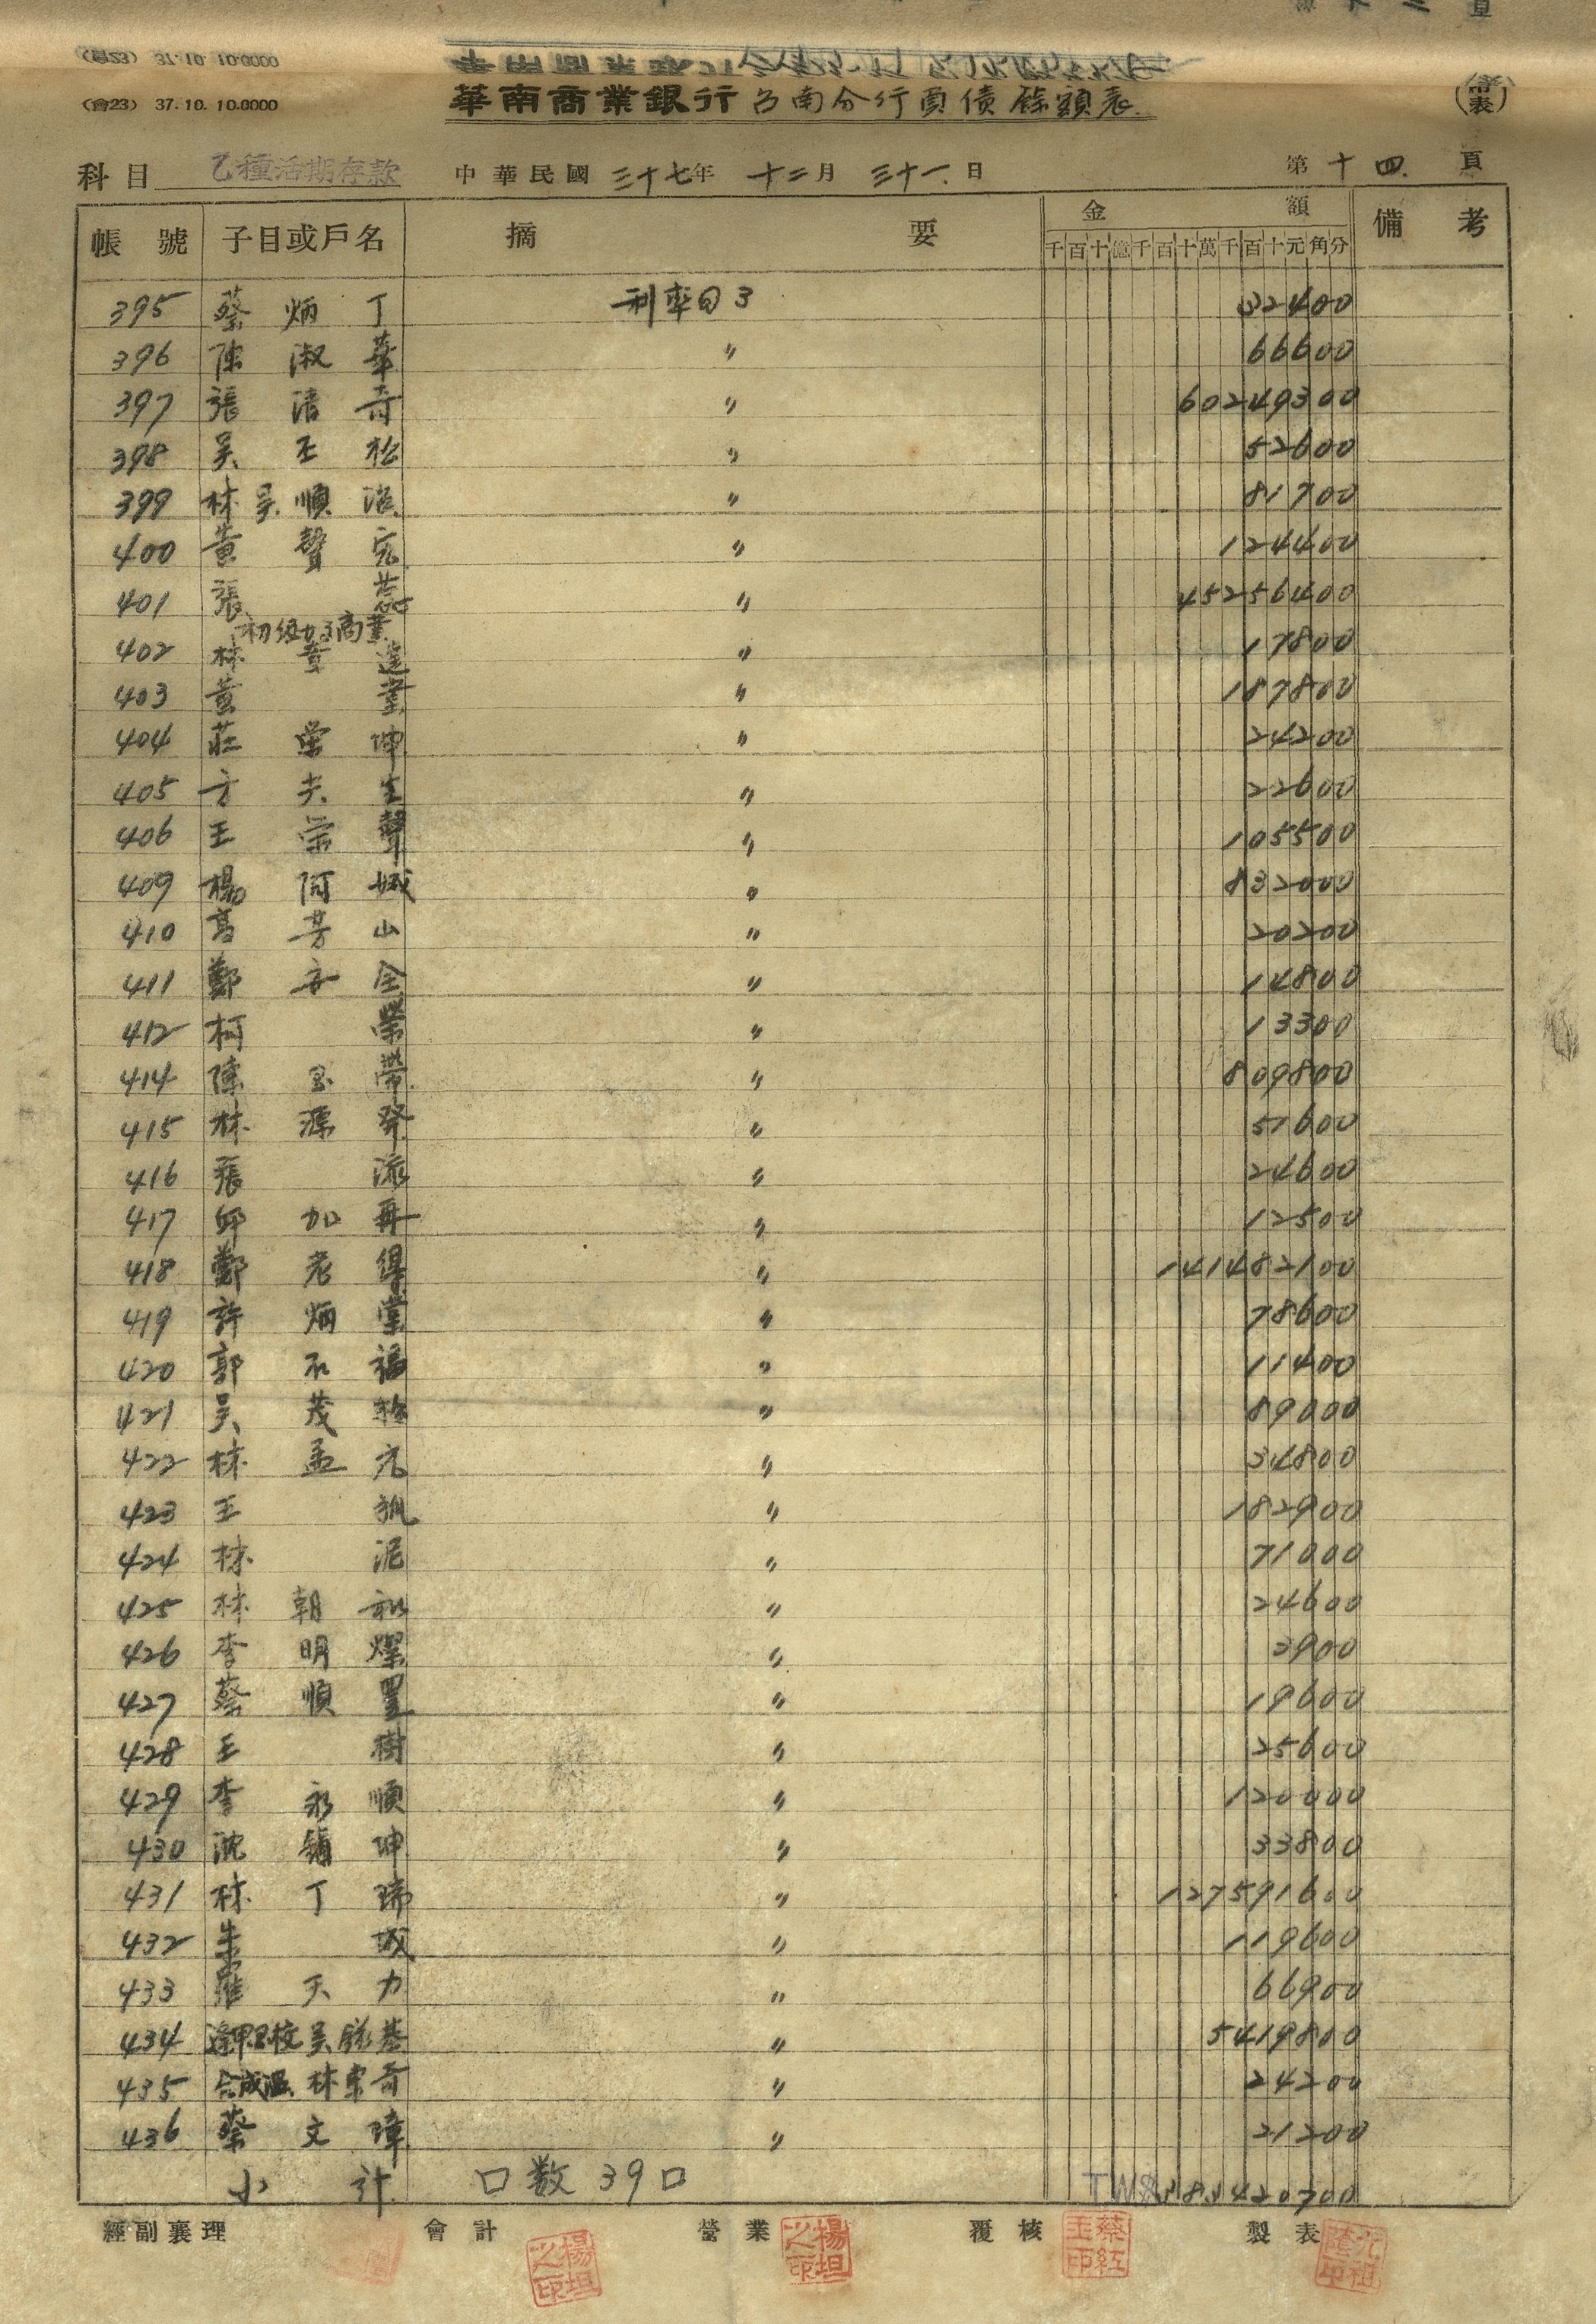 (會23) 37. 10. 10.0000
華南商業銀行 台南分行負債餘額表
科目 乙種活期存款 中華民國三十七年十二月三十一日 第十四頁
帳號 子目或戶名 摘要 金額 備考
千百十億千百十萬千百十元角分
395 蔡炳丁 利率日3 32400
396 陳淑華 〃 66600
397 張清奇 〃 60249300
398 吳玉松 〃 52600
399 林吳順 〃 81700
400 黃聲宏 〃 124400
401 張蕊 〃 45256400
初級 商業
402 林章造 〃 17800
403 黃業 〃 187800
404 莊榮坤 〃 24200
405 方夫生 〃 22600
406 王榮聲 〃 105500
409 楊阿城 〃 832000
410 高芳山 〃 20200
411 鄭全 〃 14800
412 柯榮 〃 13300
414 陳榮 〃 809800
415 林源發 〃 51600
416 張添 〃 24600
417 邱加再 〃 12500
418 鄭老得 〃 141482100
419 許炳棠 〃 78600
420 郭石福 〃 11400
421 吳茂松 〃 89000
422 林孟元 〃 34800
423 王 〃 182900
424 林泥 〃 71000
425 林朝和 〃 24600
426 李明燦 〃 3900
427 蔡順置 〃 19600
428 王樹 〃 25600
429 李永順 〃 120000
430 沈鎮坤 〃 33800
431 林丁瑞 〃 127591600
432 朱城 〃 119600
433 羅天力 〃 66900
434 逢甲 校 吳 基 〃 5419800
435 合成 林東奇 〃 24200
436 蔡文璋 〃 21200
小計 口数39口 TW$383420700
經副襄理 會計 營業 覆核 製表
楊坦之印 楊坦之印 蔡紅玉印